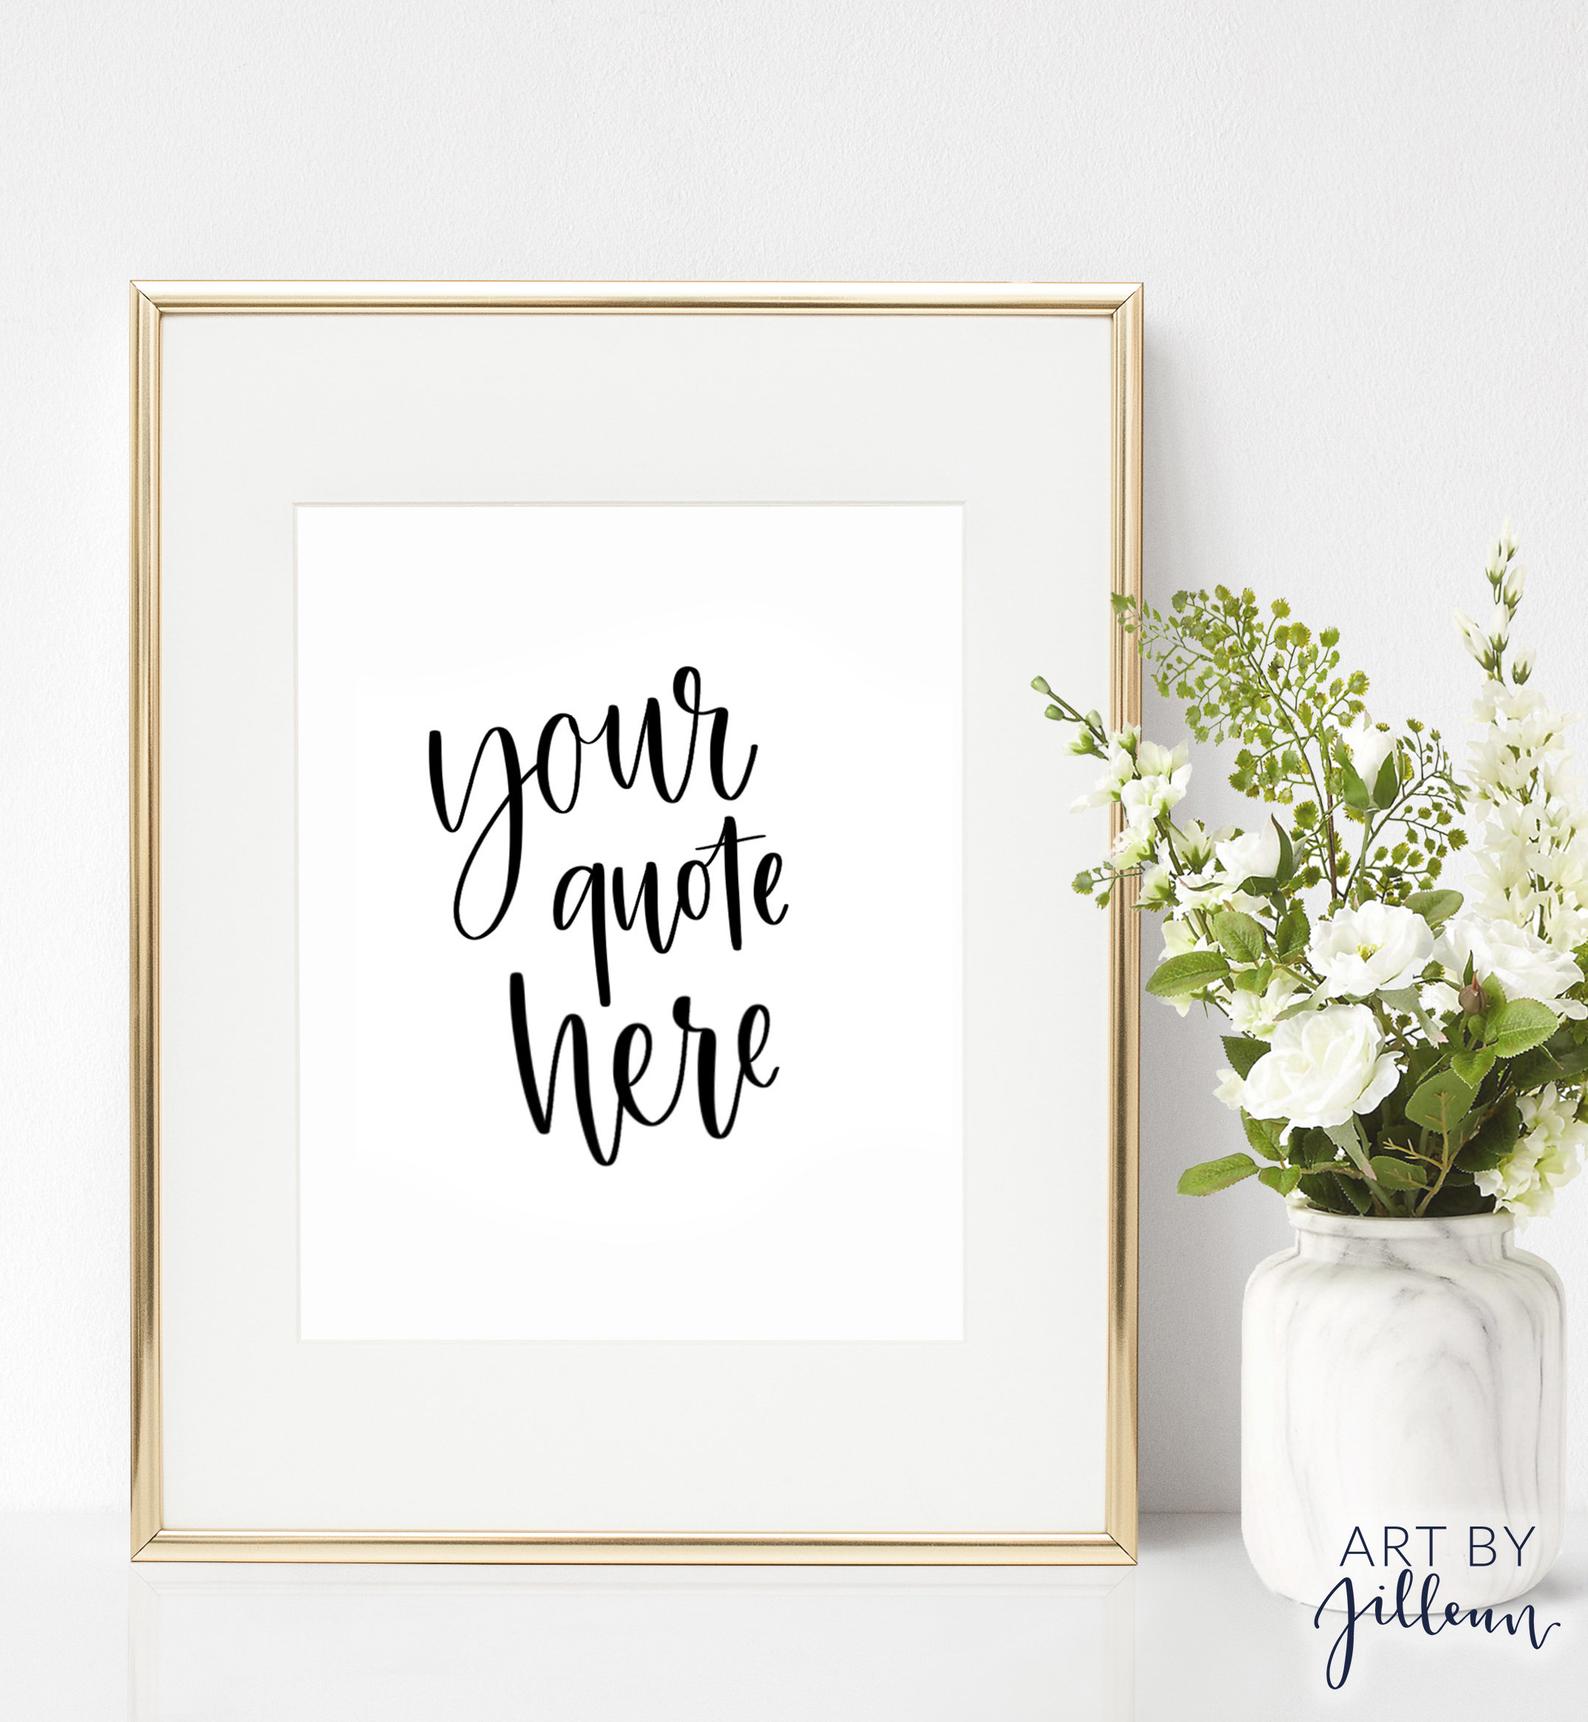 your
quote
here
ART BY
Jillenn